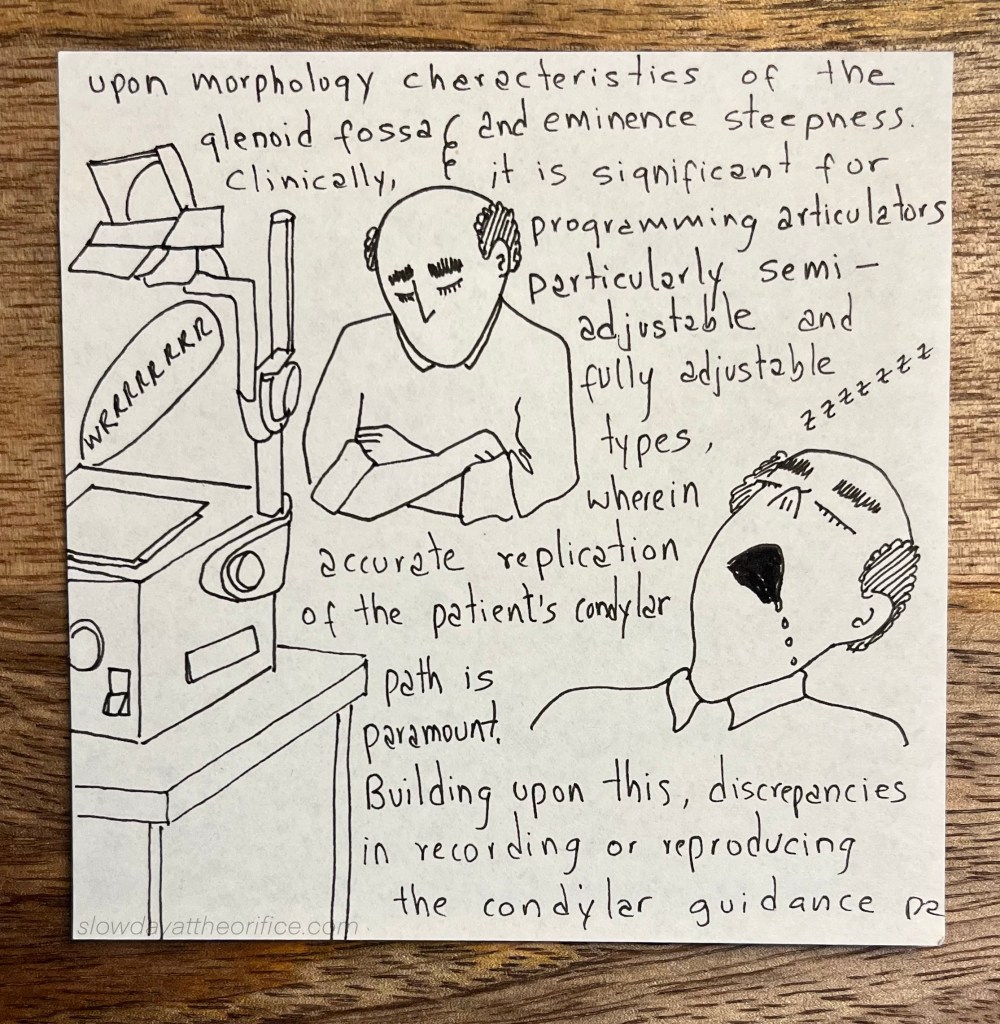 upon morphology characteristics of the
glenoid fossa and eminence steepness.
Clinically, it is significant for
programming articulators
particularly semi-
adjustable and
fully adjustable
types,
wherein
accurate replication
of the patient's condylar
path is
paramount.
Building upon this, discrepancies
in recording or reproducing
the condylar guidance pa
WRRRRRRR
zzzzzzz
slowdayattheorifice.com